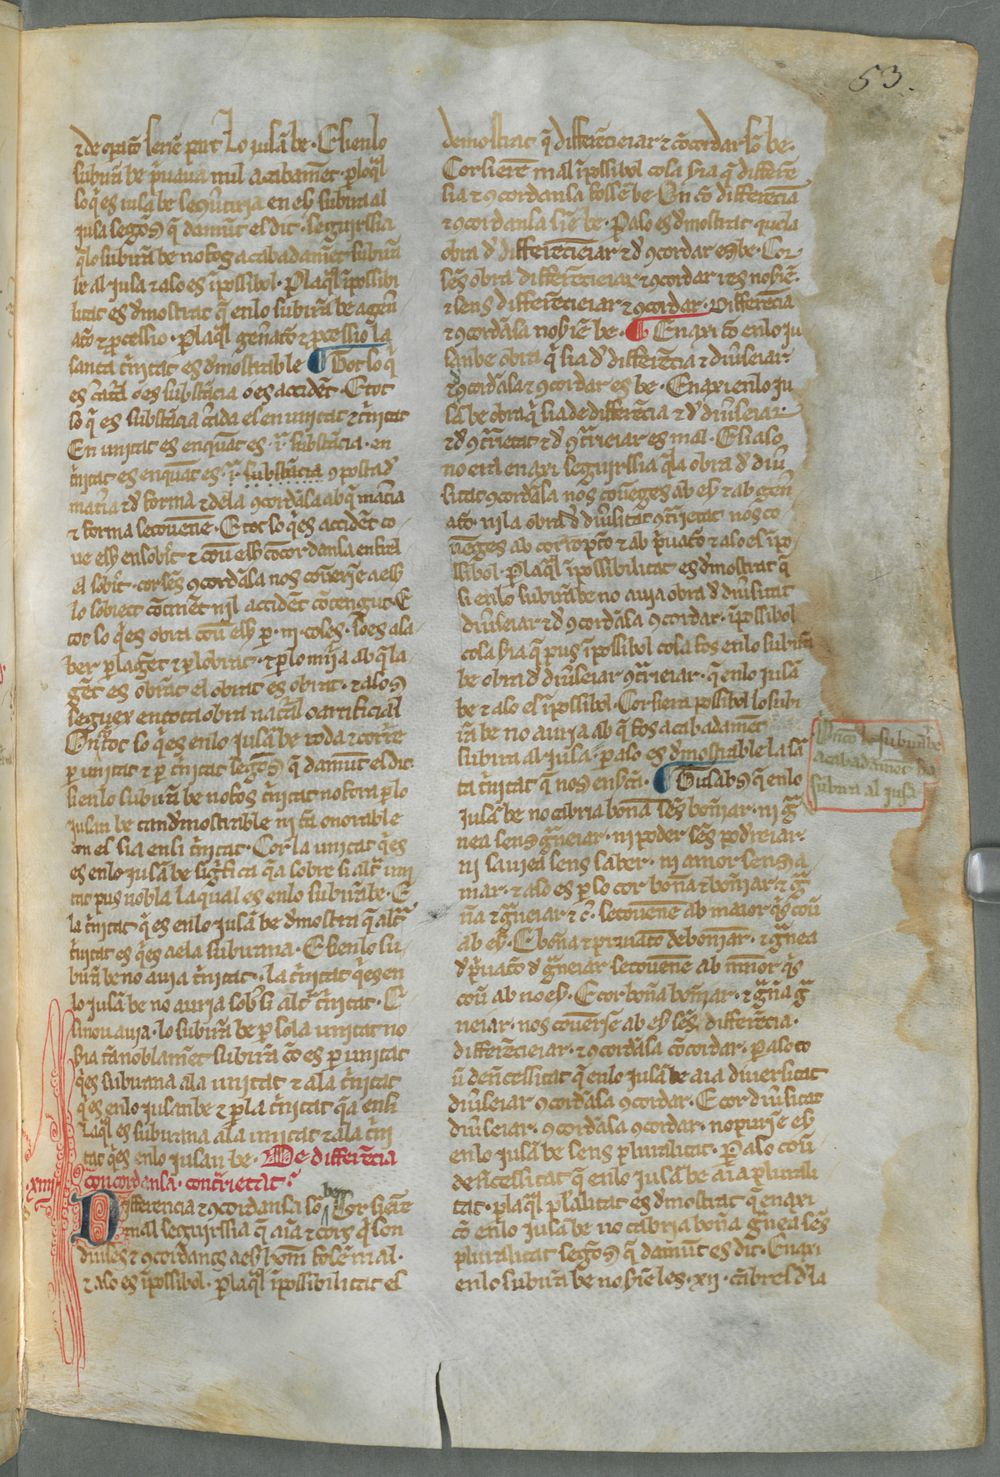 53.
⁊ de opaco sens put lo iusa be. E si en lo
subira be priuatia nul acabamet. per laql
so q es iusa be se mouria en eyl subira al
iusa segos q damut es dit. seguirssia
q lo subira be no fos acabadamet subira
be al iusa e aso es ipossibol. Per laql ipossibi
litat es demostrat q en lo subira be a gen
acio e pcessio. Per laql genacio e pcessio la
santa trinitat es demostrable ¶ Tot so q
es creat o es substacia o es accidet. E tot
so q es substacia creada es en unitat e trinitat
En unitat es en quat es .i. substacia. en
trinitat es en quat es .i. substacia composta d
materia e d forma e de la concordasa ab q materia
e forma se couenen. E tot so q es accidet co
ue eyl en sobiet
el sobiet. cor ses concordasa nos couerse a eyl
lo sobiect continet nil accidet contengut. E
tot so q es obra coue eyl p .iii. coses. so es a sa
ber per laget e per lobrat. e per lo miia ab q la
get es obrat el obrat es obrat. e aso
seguex en tota obra natal o artificial
On tot so q es en lo iusa be roda e corre
per unitat e per trinitat segos q damut es dit
si en lo subira be no fos trinitat no fora per lo
iusan be tan demostrable ni ta onorable
com el sia en si trinitat. Cor la unitat q es
es en lo iusa be sigfica q a sobre si altra uni
tat pus nobla la qual es en lo subira be. E
la trinitat q es en lo iusa be demostra q altra
trinitat es q es a ela subirana. E si en lo su
bira be no auia trinitat. la trinitat q es en
lo iusa be no auria sobre si altra trinitat. E
si nou auia. lo subira be per sola unitat no
sia ta noblamet subira co es per unitat
q es subirana a la unitat e a la trinitat
q es en lo iusan be e per la trinitat q a en si
laql es subirana a la unitat e a la trini
tat q es en lo iusan be. De differencia
concordansa. contrietat.
.xiiii.
Differencia e concordansa so bes Cor si eren
mal seguirssia q aia e cors q son
diuses e concordants a eyl hom fossen mal.
e aso es ipossibol. per laql ipossibilitat es
demostrat q differeciciar e cocordar so be.
Cor si eren mal ipossibol cosa sia q differe
cia e concordansa fossen be. On co differencia
e concordansa sien be. Per aso es demostrat. que la
obra d differenciciar e d concordar es be. Cor
sens obra differenciciar e concordar res no sie.
e sens differenciciar e concordar. Differencia
e concordasa no sien be. ¶ En axi co en lo iu
san be obra q sia d differecia e diuseiar
e concordasa e concordar es be. En axi en lo iu
sa be obra q sia de differecia e d diuseiar
e d contrietat e d contrieiar es mal. E si aso
no era en axi seguirssia q la obra d diu
sitat concordasa nos couenges ab eyl e ab gen
acio. ni la obra d diusitat contrietat nos co
uenges ab corropcio e ab priuacio e aso es ipo
ssibol. Per laql ipossibilitat es demostrat q
si en lo subira be no auia obra d diusitat
diuseiar e d concordasa concordar. ipossibol
cosa sia q pus ipossibol cosa fos en lo subira
be obra d diuseiar contrieiar. q en lo iusa
be e aso es ipossibol. Cor si era possibol lo subi
ra be no auria ab q fos acabadamet
subira al iusa. per aso es demostrable la sa
ta trinitat q nos ensercam. ¶ Tu sabs q en lo
iusa be no cabria bona ses bonejar. ni ga
nea sens ganeiar. ni poder ses podreiar.
ni sauiea sens saber. ni amor sens a
mar. e aso es per so cor bona e boniar e ga
na e ganeiar e c. se couenen ab maior q ses coue
ab eyl. E bona e priuacio de boniar. e ganea
d priuacio d ganeiar se couenen ab menor q ses
coue ab no eyl. E cor bona boniar. e gana ga
neiar. nos couerse ab eyl ses differencia.
differenciciar. e concordasa cocordar. per aso co
ue de necessitat q en lo iusa be aia diuersitat
diuseiar concordasa concordar. E cor diusitat
diuseiar. concordasa concordar. no puxe eyl
en lo iusa be sens pluralitat. Per aso coue
de necessitat q en lo iusa be aia plurali
tat. per laql pluralitat es demostrat q en axi
co en lo iusa be no cabria bona ganea ses
pluralitat segos q damut es dit. En axi
en lo subira be no sien les .xii. cabres d la
On co lo subira be
acabadamet sia
subira al iusa